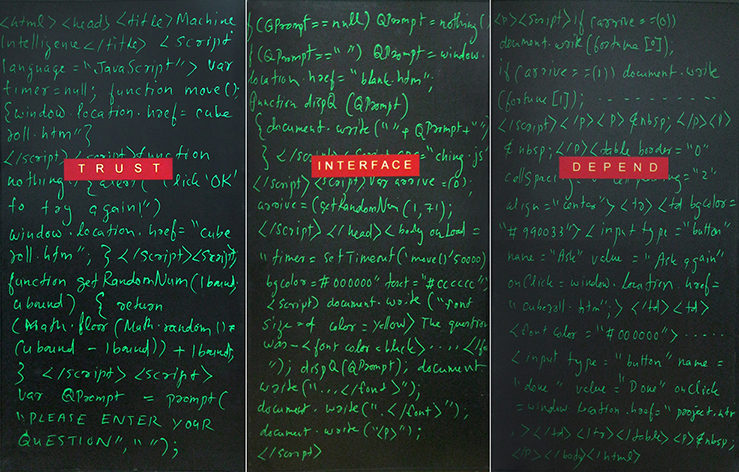 <html> <head> <title> Machine
Intelligence </title> <script
language = "JavaScript"> var
timer=null; function move()
{window.location.href= cube
roll.htm"}
</script> <script> function
TRUST
nothing() {alert( "Click 'OK'
to try again!")
window.location.href= "cube
roll.htm"; } </script> <script>
function getRandomNum(lbound,
ubound) { return
(Math.floor (Math.random() *
(ubound - lbound)) + lbound;
} </script> <script>
var QPrompt = prompt(
"PLEASE ENTER YOUR
QUESTION", " ");
if (QPrompt == null) QPrompt = nothing()
if (QPrompt==" ") QPrompt = window.
location.href= "blank.htm";
function dispQ (QPrompt)
{document.write(" "+ QPrompt+" "
} </script> "ching.js"
INTERFACE
</script> <script> var arrive =(0);
arrive = (getRandomNum (1,71);
</script> </head> <body onLoad =
"timer= setTimeout('move()'50000)
bgcolor=#000000" text= "#cccccc">
<script> document.write ("<font
size=of color = yellow> The question
was- <font color = black> .... </fo
"); dispQ(QPrompt); document
write("...</font>");
document.write(".</font>");
document.write("<p>");
</script>
<p> <script> if (arrive ==(0))
document.write (fortune [0]);
if (arrive ==(1)) document.write
(fortune [1]); - - - - - - - - -
</script> </p> <p> &nbsp; </p> <p>
&nbsp; </p> <table border= "0"
DEPEND
cellspaci "2"
align= "center"> <tr> <td bgcolor=
"#990033"> < input type= "button"
name= "Ask" value = "Ask again"
onClick = window.location.href=
"cuberoll.htm"; > </td> <td>
<font color = "#000000"> ......
<input type= "button" name =
"done" value= "Done" onClick
=window location.href= "project.htm
, > </td> </tr> </table> <p> &nbsp;
</p> </body> </html>